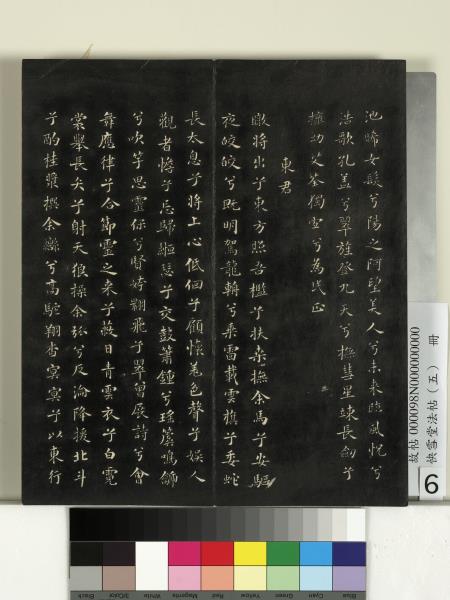 池晞女髮兮陽之阿望美人兮未來臨風怳兮
浩歌孔蓋兮翠旌登九天兮撫彗星竦長劍兮
擁幼艾荃獨宜兮為民正
東君
暾將出兮東方照吾檻兮扶桑撫余馬兮安驅
夜皎皎兮既明駕龍輈兮乘雷載雲旗兮委蛇
長太息兮將上心低佪兮顧懷羌色聲兮娛人
觀者憺兮忘歸緪瑟兮交鼓蕭鍾兮瑤虡鳴鷈
兮吹竽思靈保兮賢姱翾飛兮翠曾展詩兮會
舞應律兮合節靈之來兮蔽日青雲衣兮白霓
裳舉長矢兮射天狼操余弧兮反淪降援北斗
兮酌桂漿撰余轡兮高駝翔杳冥冥兮以東行
故帖000098N000000000
快雪堂法帖（五） 冊
6
Blue
Cyan
Green
Yellow
Red
Magenta
White
3/Color
Black